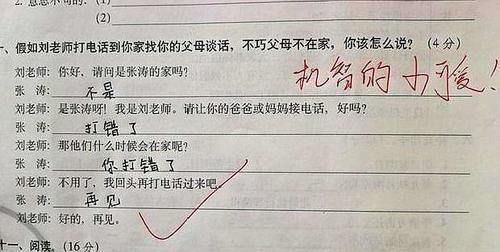 2. 意思不明的:(1)
(2)
一、假如刘老师打电话到你家找你的父母谈话，不巧父母不在家，你该怎么说？(4分)
刘老师：你好，请问是张涛的家吗？
机智的小可爱！
张 涛：不是
刘老师：是张涛呀！我是刘老师。请让你的爸爸或妈妈接电话，好吗？
张 涛：打错了
刘老师：那他们什么时候会在家呢？
张 涛：你打错了
刘老师：不用了，我回头再打电话过来吧。
张 涛：再见
刘老师：好的，再见。
十一、阅读。(16分)